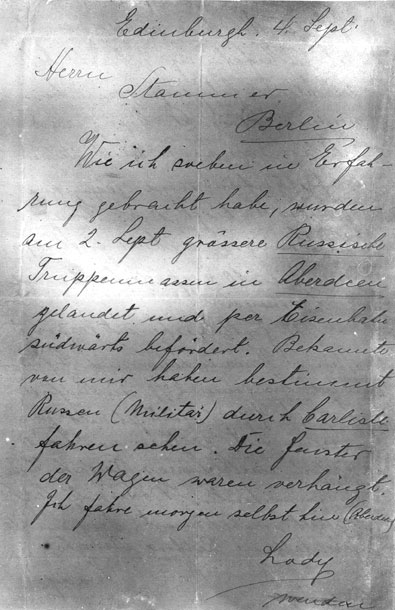 Edinburgh. 4. Sept.
Herrn
Stammer
Berlin
Wie ich soeben in Erfah-
rung gebracht habe, wurden
am 2. Sept grössere Russische
Truppenmassen in Aberdeen
gelandet und per Eisenbahn
südwärts befördert. Bekannte
von mir haben bestimmt
Russen (Militär) durch Carlisle
fahren sehen. Die Fenster
der Wagen waren verhängt.
Ich fahre morgen selbst hin (Aberdeen)
Lody